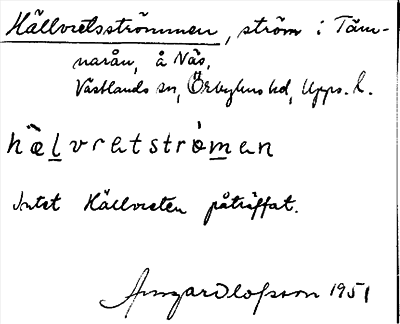 Källvretsströmmen, ström i Täm-
narån, å Näs,
Västlands sn, Örbyhus hd, Upps. l.
hälvretströmen
Intet Källvreten påträffat.
Olofsson 1951